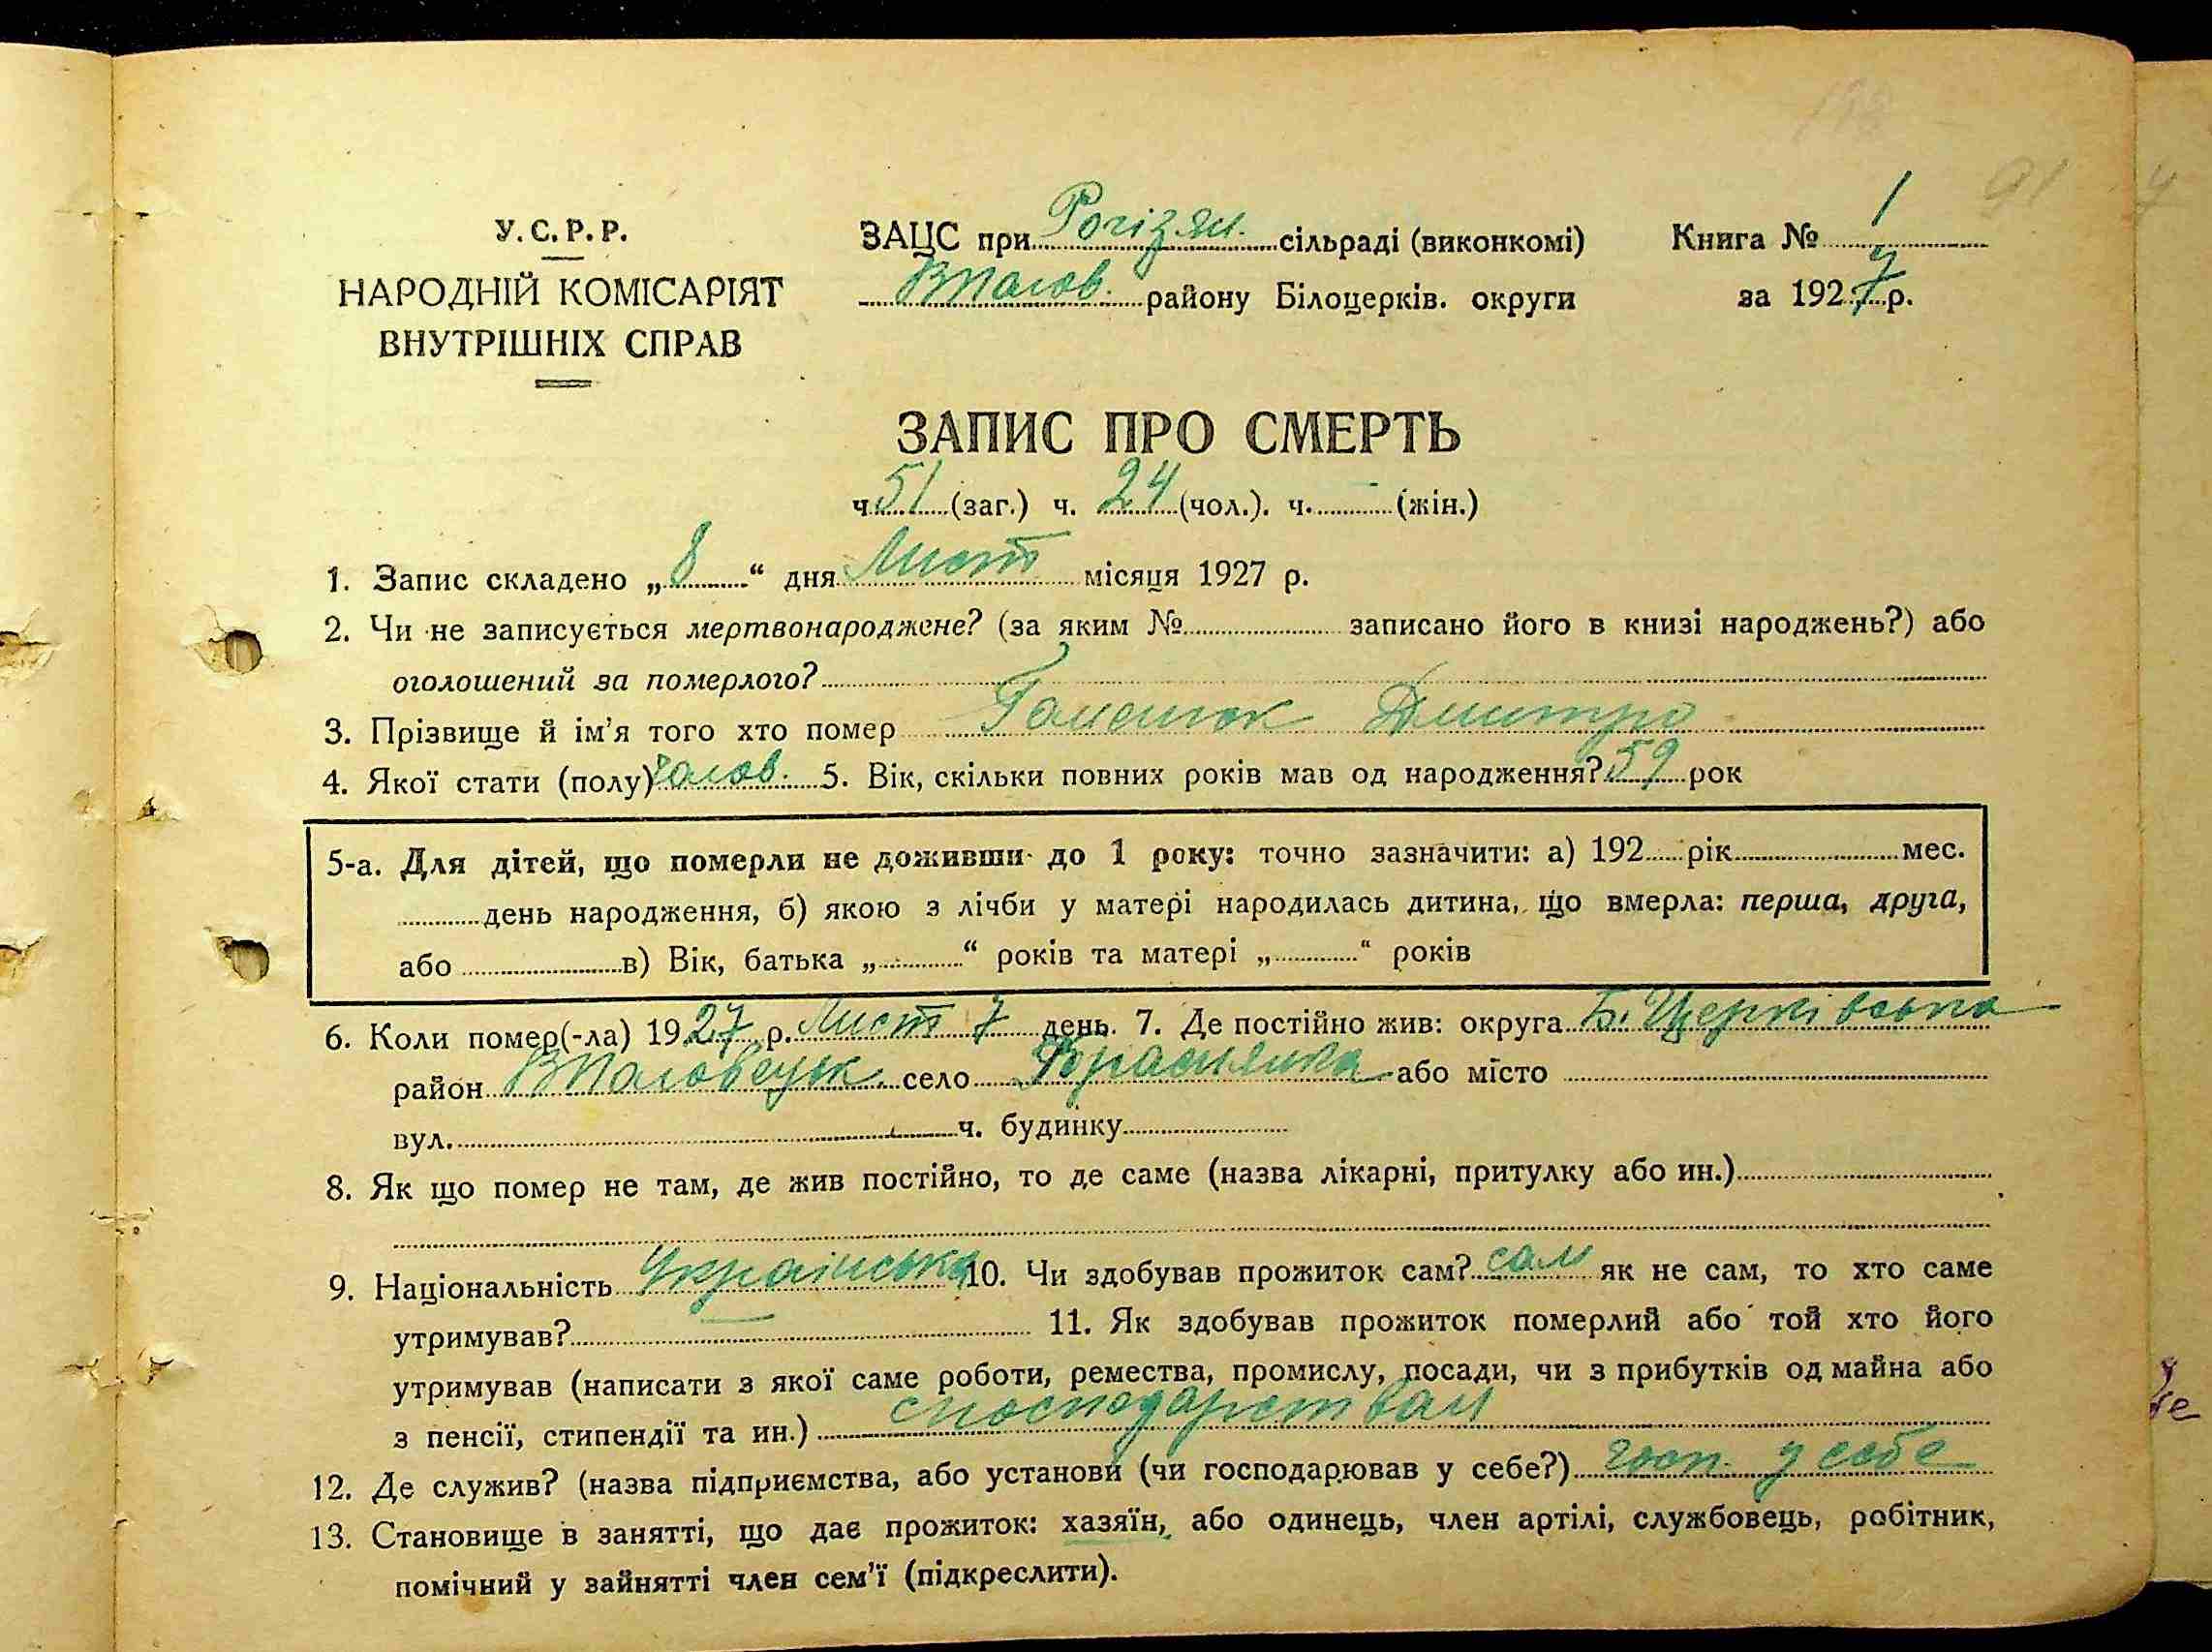 У.С.Р.Р.
НАРОДНІЙ КОМІСАРІЯТ
ВНУТРІШНІХ СПРАВ
ЗАЦС при Рогізян. сільраді (виконкомі)
району Білоцерків. округи
Книга № 1
за 1927 р.
ЗАПИС ПРО СМЕРТЬ
ч. 51 (заг.) ч. 24 (чол.). ч. - (жін.)
1. Запис складено „8“ дня Лист місяця 1927 р.
2. Чи не записується мертвонароджене? (за яким № записано його в книзі народжень?) або
оголошений за померлого?
3. Прізвище й ім'я того хто помер Дмитро
4. Якої стати (полу) Чолов. 5. Вік, скільки повних років мав од народження? 59 рок
5-а. Для дітей, що померли не доживши до 1 року: точно зазначити: а) 192 рік мес.
день народження, б) якою з лічби у матері народилась дитина, що вмерла: перша, друга,
або в) Вік, батька „ “ років та матері „ “ років
6. Коли помер(-ла) 1927 р. Лист 7 день. 7. Де постійно жив: округа Б. Церківська
район село або місто
вул. ч. будинку
8. Як що помер не там, де жив постійно, то де саме (назва лікарні, притулку або ин.)
9. Національність Українська 10. Чи здобував прожиток сам? сам як не сам, то хто саме
утримував? 11. Як здобував прожиток померлий або той хто його
утримував (написати з якої саме роботи, ремества, промислу, посади, чи з прибутків од майна або
з пенсії, стипендії та ин.)
12. Де служив? (назва підприємства, або установи (чи господарював у себе?) госп. у себе
13. Становище в занятті, що дає прожиток: хазяїн, або одинець, член артілі, службовець, робітник,
помічний у зайнятті член сем'ї (підкреслити).